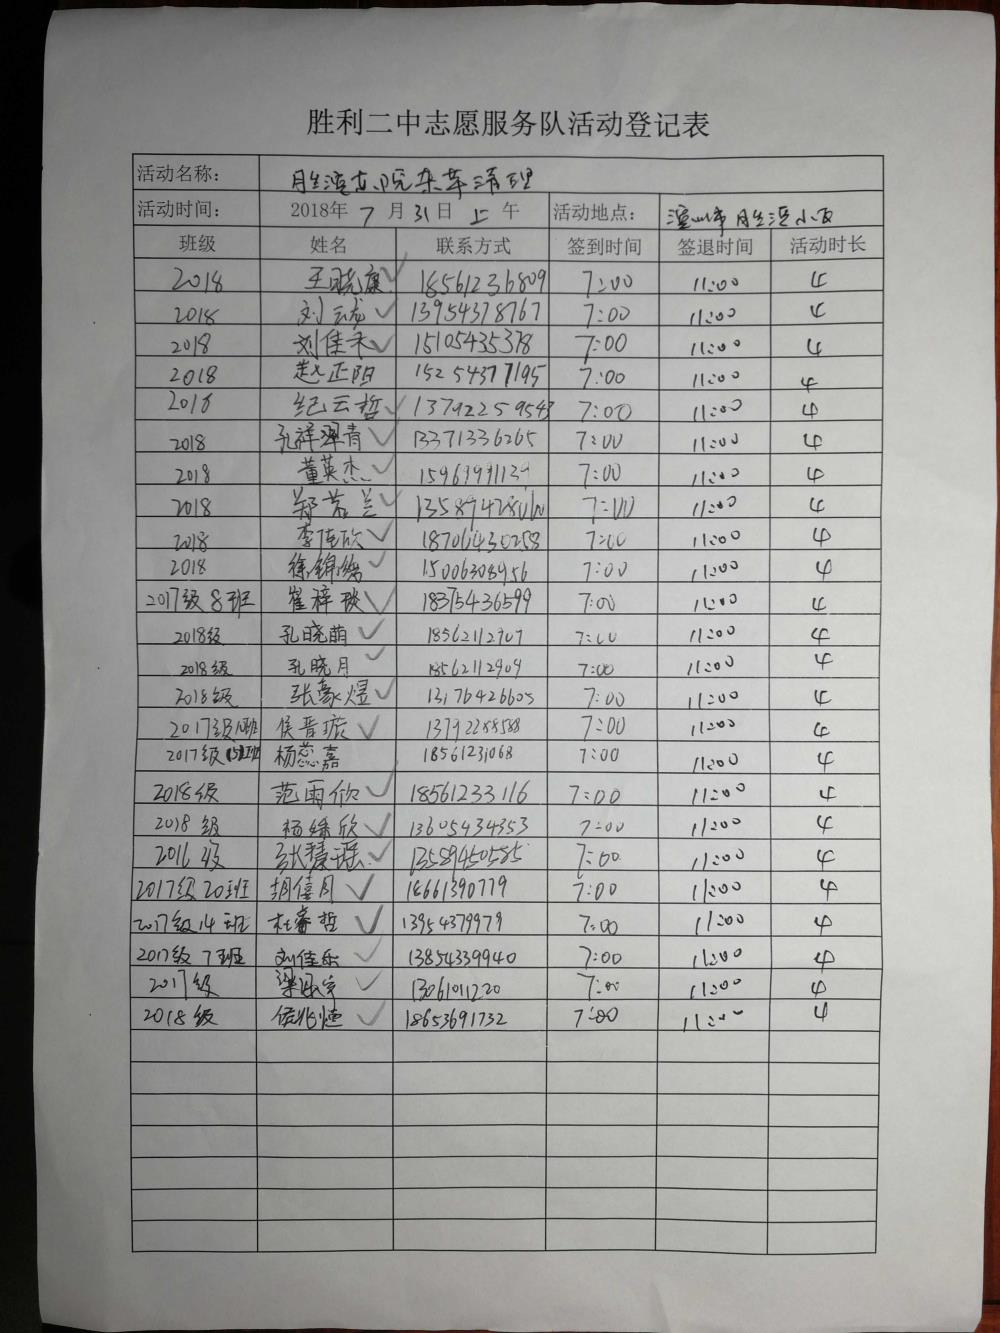 胜利二中志愿服务队活动登记表
活动名称： 胜滨东院杂草清理
活动时间： 2018年 7 月 31 日 上 午 活动地点： 滨州市胜滨小区
班级 姓名 联系方式 签到时间 签退时间 活动时长
2018 王晓康 18561236809 7:00 11:00 4
2018 刘 13954378767 7:00 11:00 4
2018 刘佳禾 15105435378 7:00 11:00 4
2018 赵正阳 15254377195 7:00 11:00 4
2018 纪云哲 13792259543 7:00 11:00 4
2018 孔祥青 13371336265 7:00 11:00 4
2018 董英杰 15969991139 7:00 11:00 4
2018 郑茗兰 7:00 11:00 4
2018 李佳欣 18706430258 7:00 11:00 4
2018 徐锦 15006308956 7:00 11:00 4
2017级8班 崔梓琰 18375436599 7:00 11:00 4
2018级 孔晓萌 18562112907 7:00 11:00 4
2018级 孔晓月 18562112909 7:00 11:00 4
2018级 张豪煜 13176426605 7:00 11:00 4
2017级 侯晋璇 13792288588 7:00 11:00 4
2017级 杨蕊嘉 18561231068 7:00 11:00 4
2018级 范雨欣 18561233116 7:00 11:00 4
2018级 杨欣 13605434353 7:00 11:00 4
2016级 张瑶 13589450585 7:00 11:00 4
2017级20班 胡僖月 18661390779 7:00 11:00 4
2017级14班 杜睿哲 13954379979 7:00 11:00 4
2017级7班 刘佳乐 13854339940 7:00 11:00 4
2017级 梁宇 13061011220 7:00 11:00 4
2018级 侯兆 18653691732 7:00 11:00 4